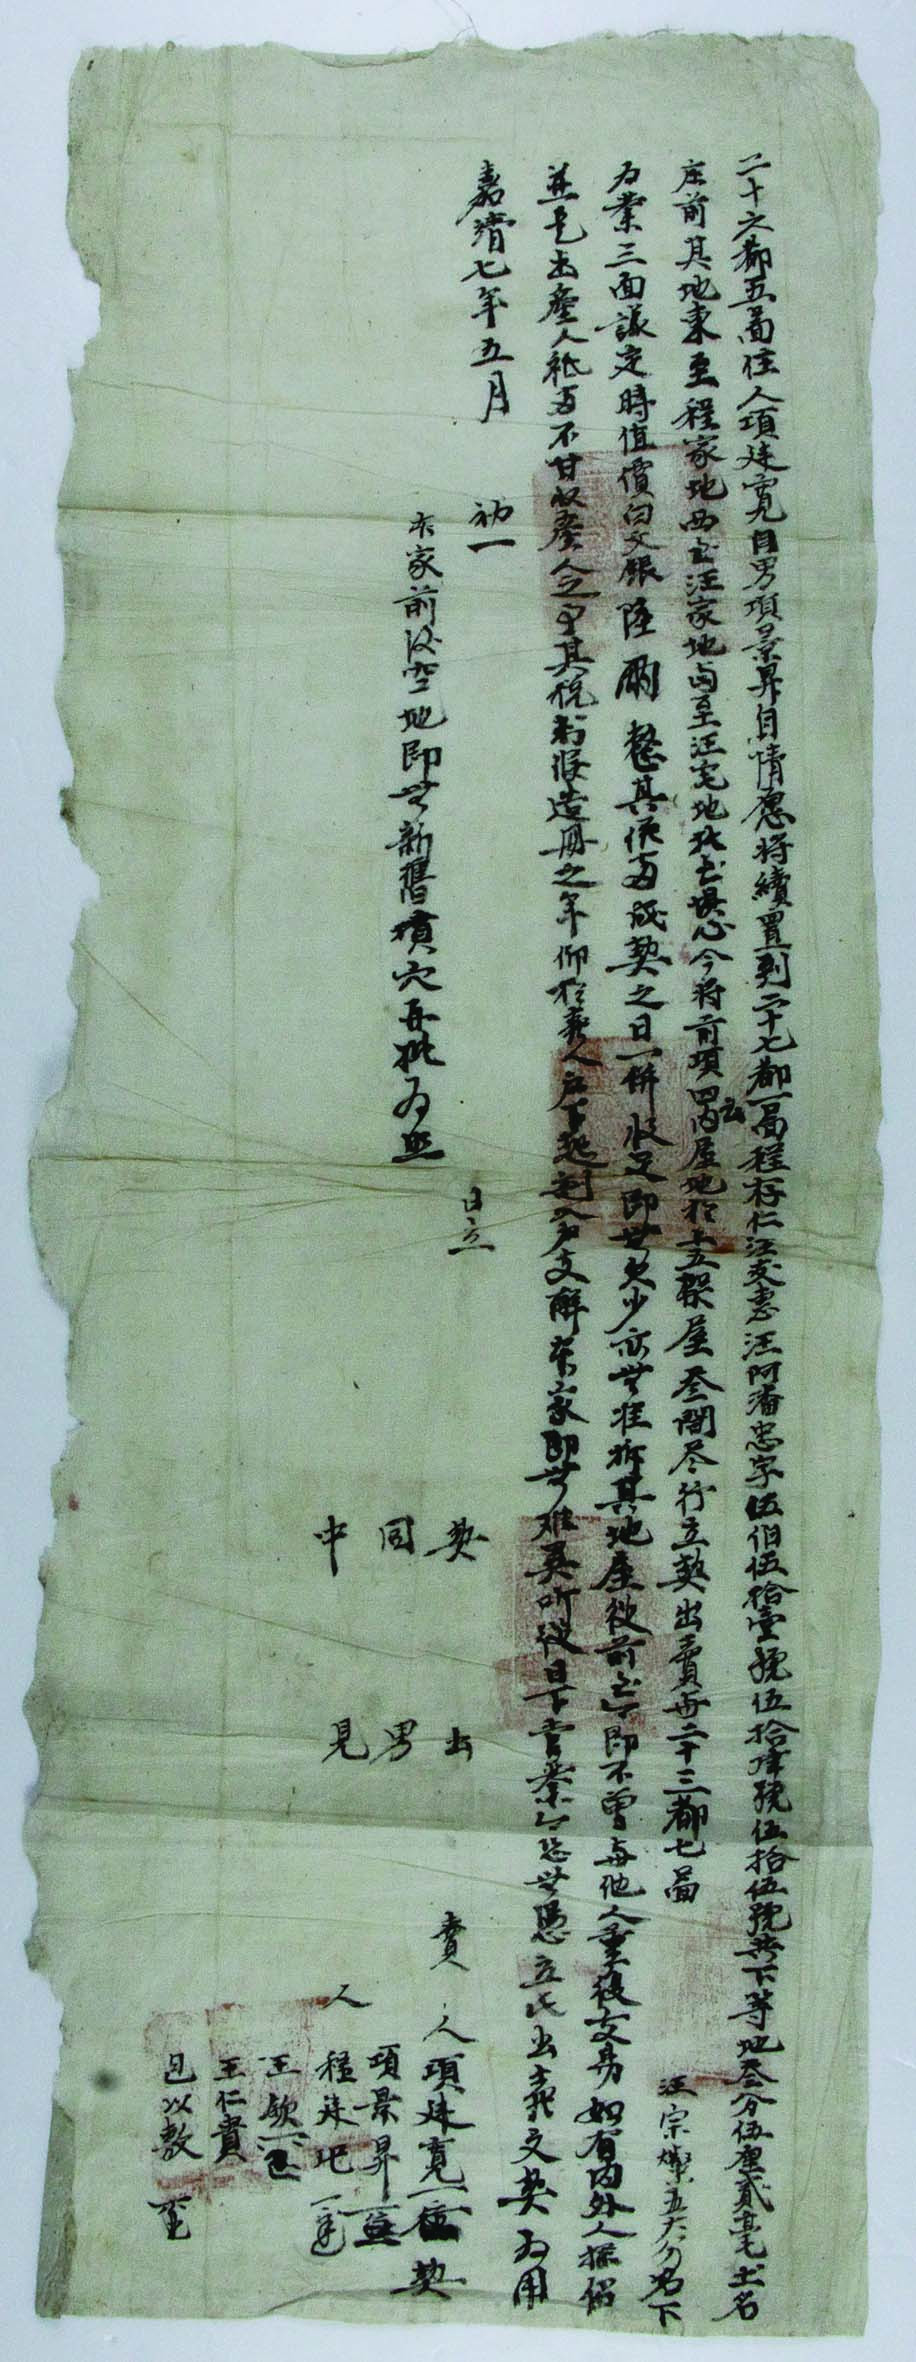 二十六都五啚住人項廷寬同男項景昇自情愿将續置到二十七都一啚程存仁汪文惠汪阿潘忠字伍伯伍拾壹號伍拾肆號伍拾伍號共下等地叁分伍厘貳毫土名
庄前其地東至程家地西至汪家地南至汪宅地北至今将前項四至内屋地於上五架屋叁間尽行立契出賣與二十三都七啚
汪宗燦五大分名下
為業三面議定時值價白文銀陸兩整其價当成契之日一併收足即無欠少亦無准折其地屋從前至今即不曾與他人重複交易如有内外人
並是出產人祗当不干收產人之事其税粮造册之年仰於人户下起割入户支解本家即無難異听從日下管業今恐無憑立此出賣文契為用
嘉靖七年五月　初一　日立
本家前後空地即無新舊墳穴再批為照
契出賣人項廷寬契
同男項景昇
中見人程廷
王欽
王仁貴
以敖